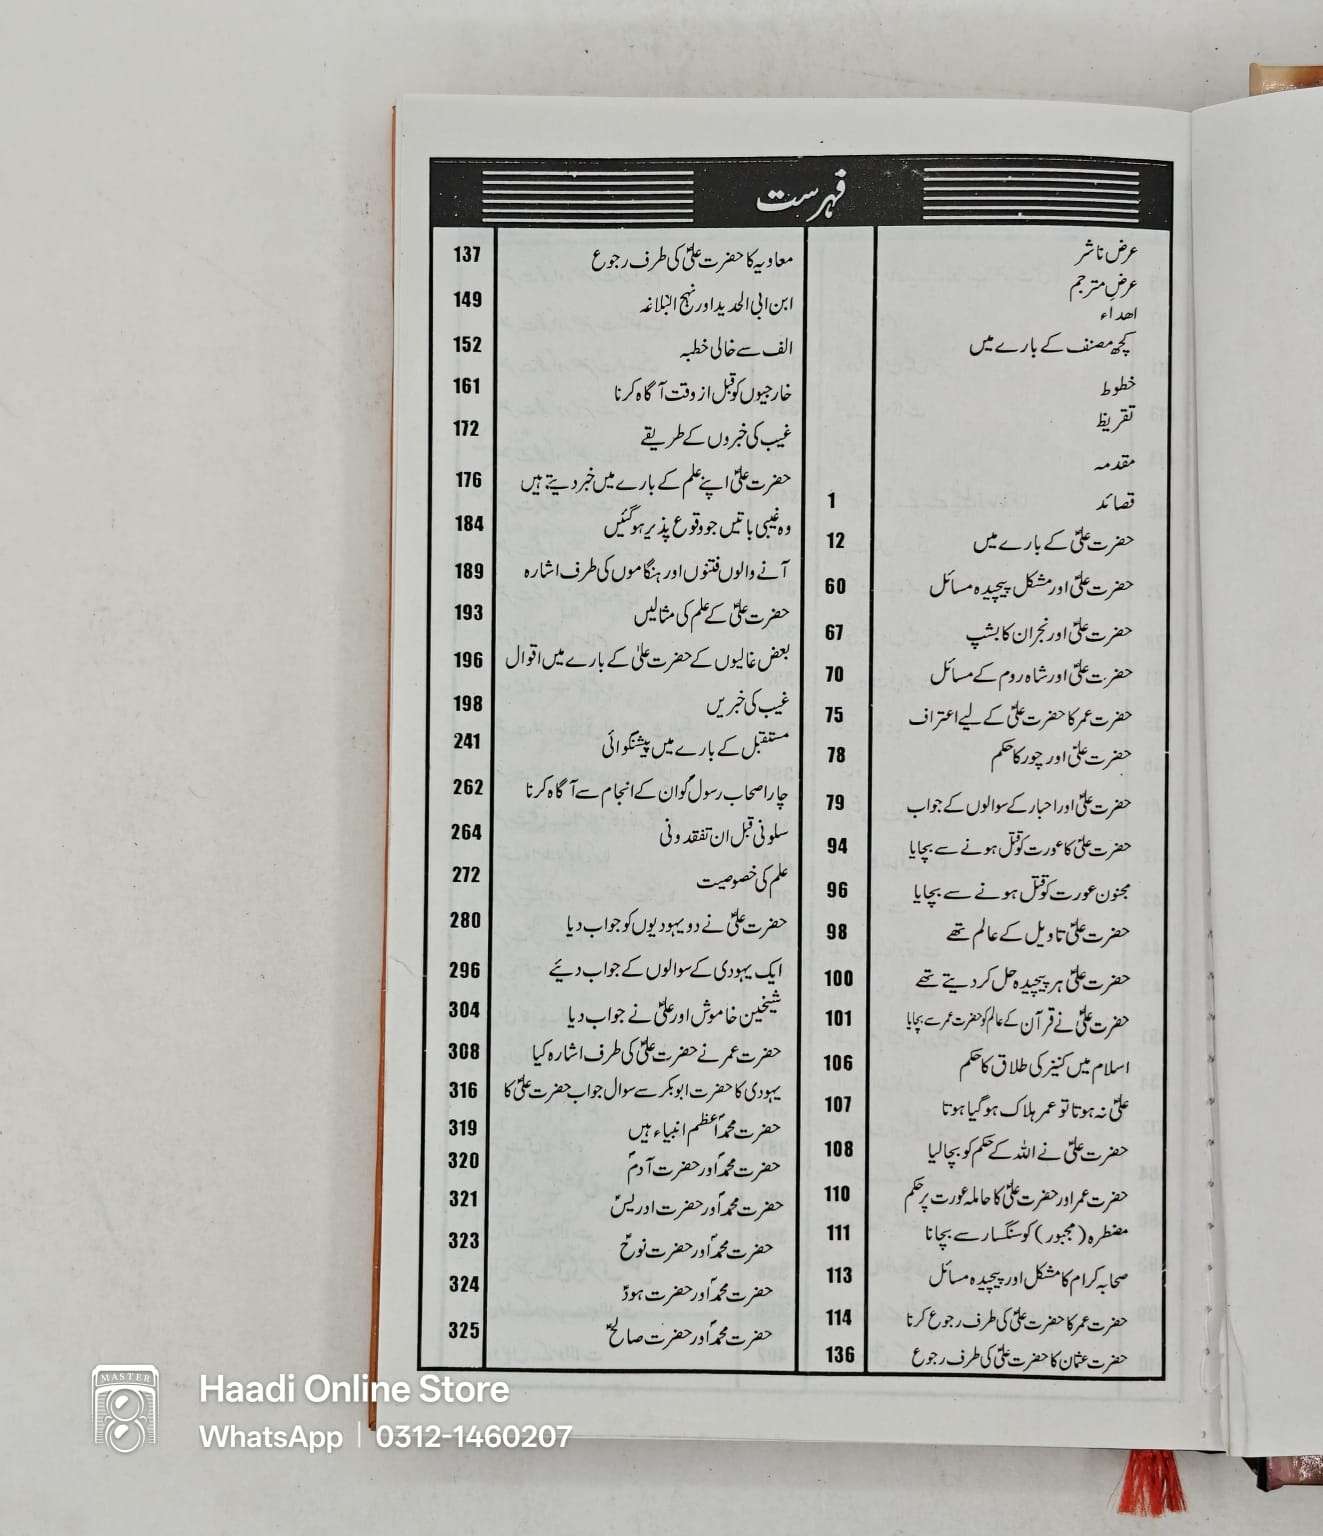 فہرست
عرض ناشر
عرض مترجم
اھداء
کچھ مصنف کے بارے میں
خطوط
تقریظ
مقدمہ
قصائد 1
حضرت علیؑ کے بارے میں 12
حضرت علیؑ اور مشکل پیچیدہ مسائل 60
حضرت علیؑ اور نجران کا بشپ 67
حضرت علیؑ اور شاہ روم کے مسائل 70
حضرت عمر کا حضرت علیؑ کے لیے اعتراف 75
حضرت علیؑ اور چور کا حکم 78
حضرت علیؑ اور احبار کے سوالوں کے جواب 79
حضرت علیؑ کا عورت کو قتل ہونے سے بچایا 94
مجنون عورت کو قتل ہونے سے بچایا 96
حضرت علیؑ تاویل کے عالم تھے 98
حضرت علیؑ ہر پیچیدہ حل کر دیتے تھے 100
حضرت علیؑ نے قرآن کے عالم کو حضرت عمر سے بچایا 101
اسلام میں کنیز کی طلاق کا حکم 106
علیؑ نہ ہوتا تو عمر ہلاک ہو گیا ہوتا 107
حضرت علیؑ نے اللہ کے حکم کو بچا لیا 108
حضرت عمر اور حضرت علیؑ کا حاملہ عورت پر حکم 110
مضطرہ (مجبور) کو سنگسار سے بچانا 111
صحابہ کرام کا مشکل اور پیچیدہ مسائل 113
حضرت عمر کا حضرت علیؑ کی طرف رجوع کرنا 114
حضرت عثمان کا حضرت علیؑ کی طرف رجوع 136
معاویہ کا حضرت علیؑ کی طرف رجوع 137
ابن ابی الحدید اور نہج البلاغہ 149
الف سے خالی خطبہ 152
خارجیوں کو قبل از وقت آگاہ کرنا 161
غیب کی خبروں کے طریقے 172
حضرت علیؑ اپنے علم کے بارے میں خبر دیتے ہیں 176
وہ غیبی باتیں جو وقوع پذیر ہو گئیں 184
آنے والوں فتنوں اور ہنگاموں کی طرف اشارہ 189
حضرت علیؑ کے علم کی مثالیں 193
بعض غالیوں کے حضرت علیؑ کے بارے میں اقوال 196
غیب کی خبریں 198
مستقبل کے بارے میں پیشنگوائی 241
چار اصحاب رسولؐ کو ان کے انجام سے آگاہ کرنا 262
سلونی قبل ان تفقدونی 264
علم کی خصوصیت 272
حضرت علیؑ نے دو یہودیوں کو جواب دیا 280
ایک یہودی کے سوالوں کے جواب دئیے 296
شیخین خاموش اور علیؑ نے جواب دیا 304
حضرت عمر نے حضرت علیؑ کی طرف اشارہ کیا 308
یہودی کا حضرت ابوبکر سے سوال جواب حضرت علیؑ کا 316
حضرت محمدؐ اعظم انبیاء ہیں 319
حضرت محمدؐ اور حضرت آدمؑ 320
حضرت محمدؐ اور حضرت ادریسؑ 321
حضرت محمدؐ اور حضرت نوحؑ 323
حضرت محمدؐ اور حضرت ہودؑ 324
حضرت محمدؐ اور حضرت صالحؑ 325
MASTER
Haadi Online Store
WhatsApp | 0312-1460207